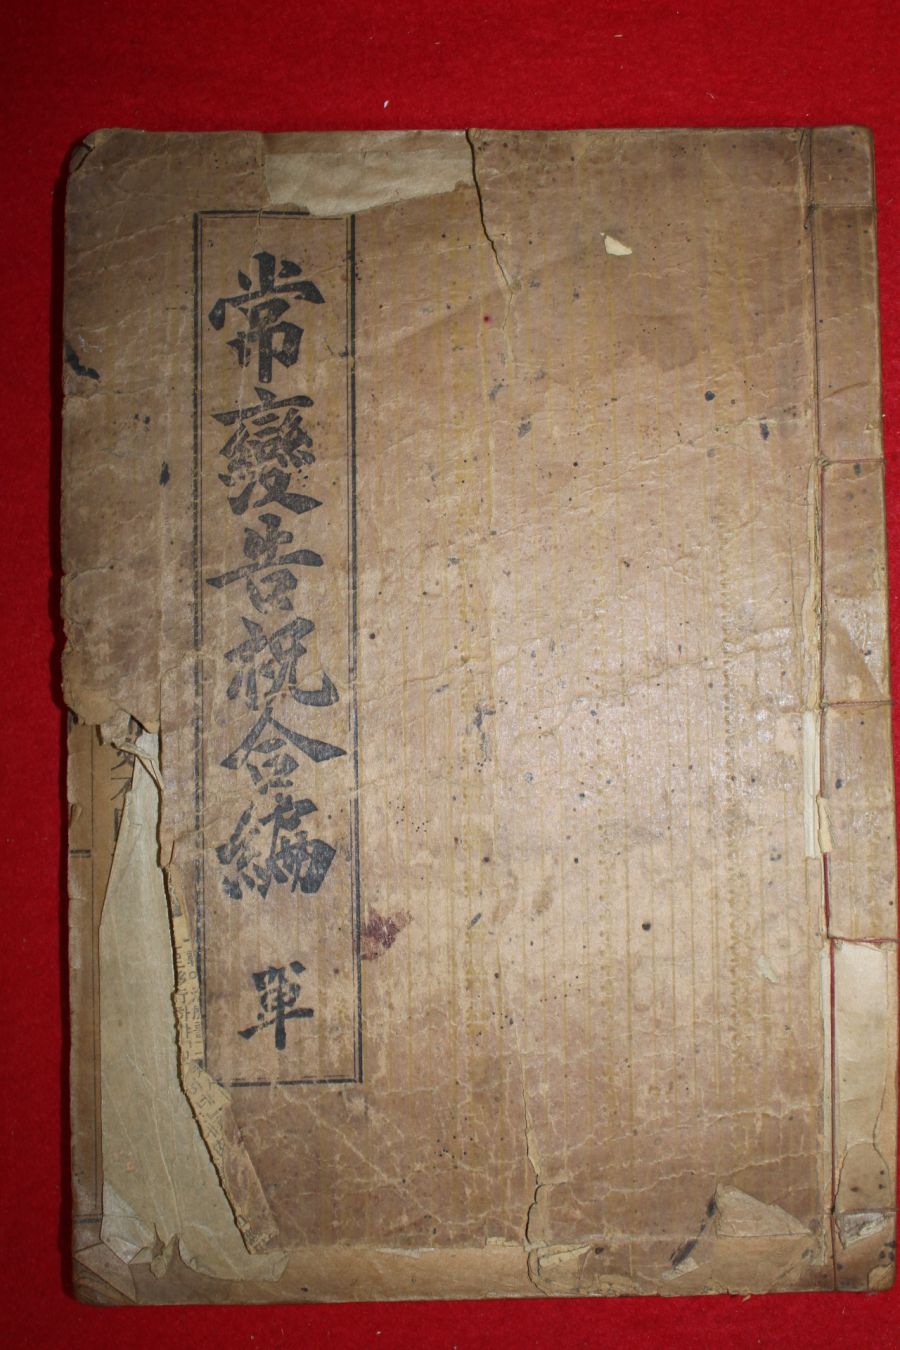 常變告祝合編 單